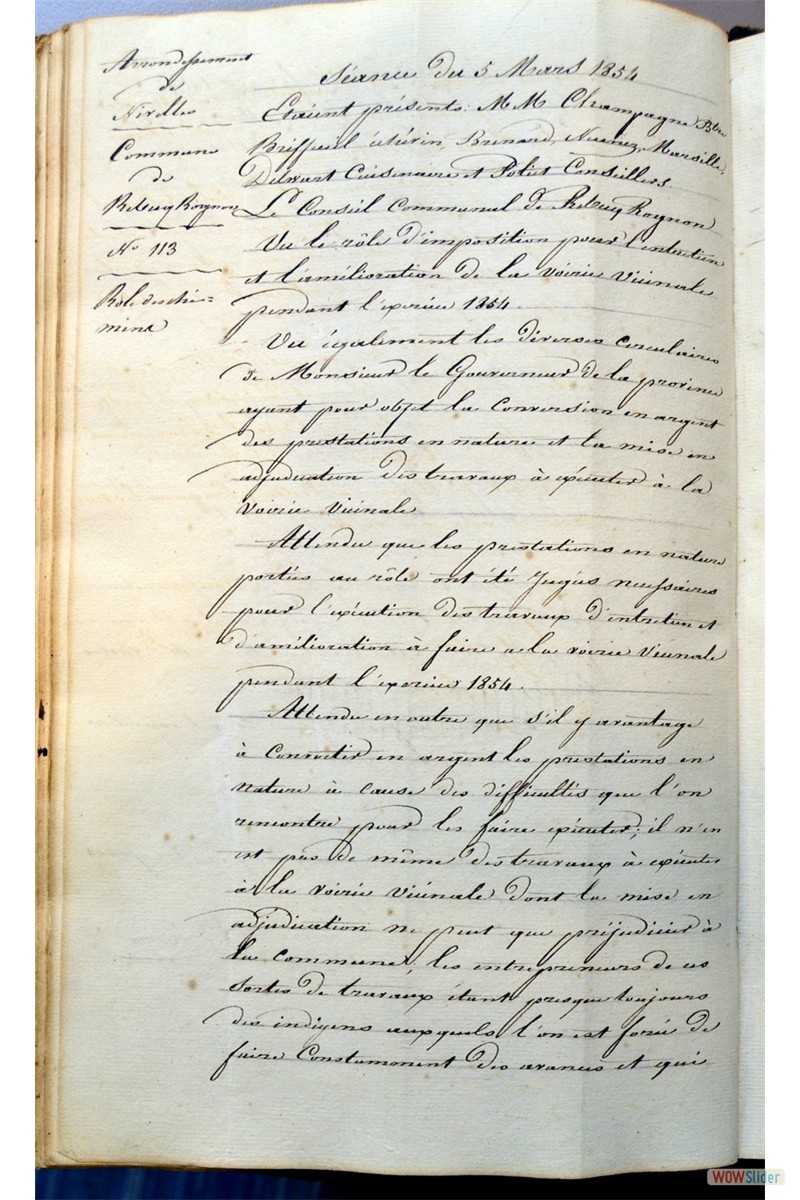 Arrondissement
de
Nivelles
Commune
de
Rebecq Rognon
N° 113
Role des che=
mins
Séance du 5 Mars 1854
Etaient présents: MM Champagne Btre
Briffeuil échévin, Brenard, Marsille,
Delwart Cuisenaire et Poliet Conseillers.
Le Conseil Communal de Rebecq Rognon
Vu le rôle d'imposition pour l'entretien
et l'amélioration de la Voirie Vicinale
pendant l'exercice 1854.
Vu également les diverses circulaires
de Monsieur le Gouverneur de la province
ayant pour objet la Conversion en argent
des prestations en nature et la mise en
adjudication des travaux à exécuter à la
voirie vicinale
Attendu que les prestations en nature
portées au rôle ont été Jugées nécessaires
pour l'exécution des travaux d'entretien et
d'amélioration à faire a la voirie Vicinale
pendant l'exercice 1854.
Attendu en outre que s'il y avantage
à Convertir en argent les prestations en
nature à cause des difficultés que l'on
rencontre pour les faire exécuter; il n'en
est pas de même des travaux à exécuter
à la voirie vicinale dont la mise en
adjudication ne peut que préjudicier à
la commune, les entrepreneurs de ces
sortes de travaux étant presque toujours
des indigens auxquels l'on est forcé de
faire Constamment des avances et qui
WOWSlider